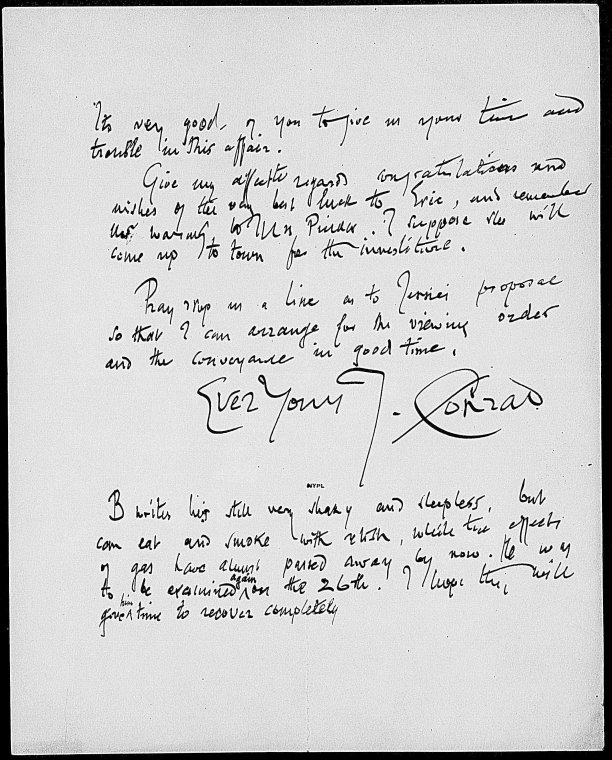 It's very good of you to give us your time and
trouble in this affair.
Give my affecte regards congratulations and
wishes of the very best luck to Eric, and remember
us warmly to Mrs Pinker. I suppose she will
come up to town for the investiture.
Pray drop us a line as to Jessie's proposal
so that I can arrange for the viewing order
and the conveyance in good time.
Ever Yours J. Conrad
NYPL
B writes he's still very shaky and sleepless, but
can eat and smoke with relish, while the effects
of gas have almost passed away by now. He was
to be examined again on the 26th. I hope they will
give him time to recover completely